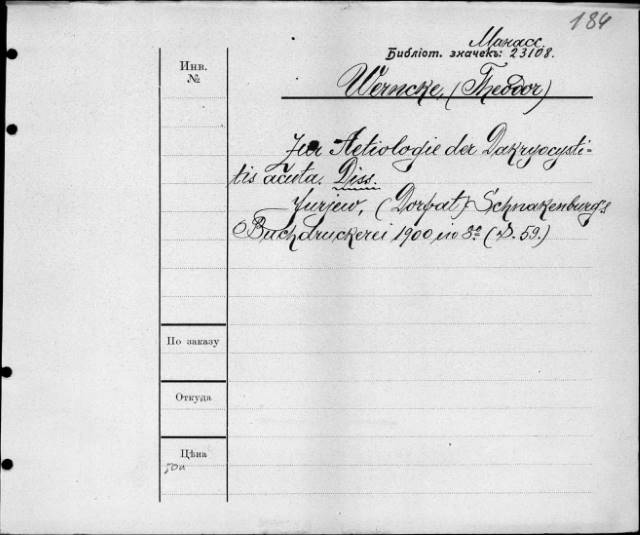 184
Манасс.
Библіот. значекъ: 23108.
Инв.
№
Werncke, (Theodor)
Zur Aetiologie der Dakryocysti-
tis acuta. Diss.
Jurjew, (Dorpat) Schnakenburg's
Buchdruckerei 1900 in 8º (S. 59.)
По заказу
Откуда
Цѣна
50к